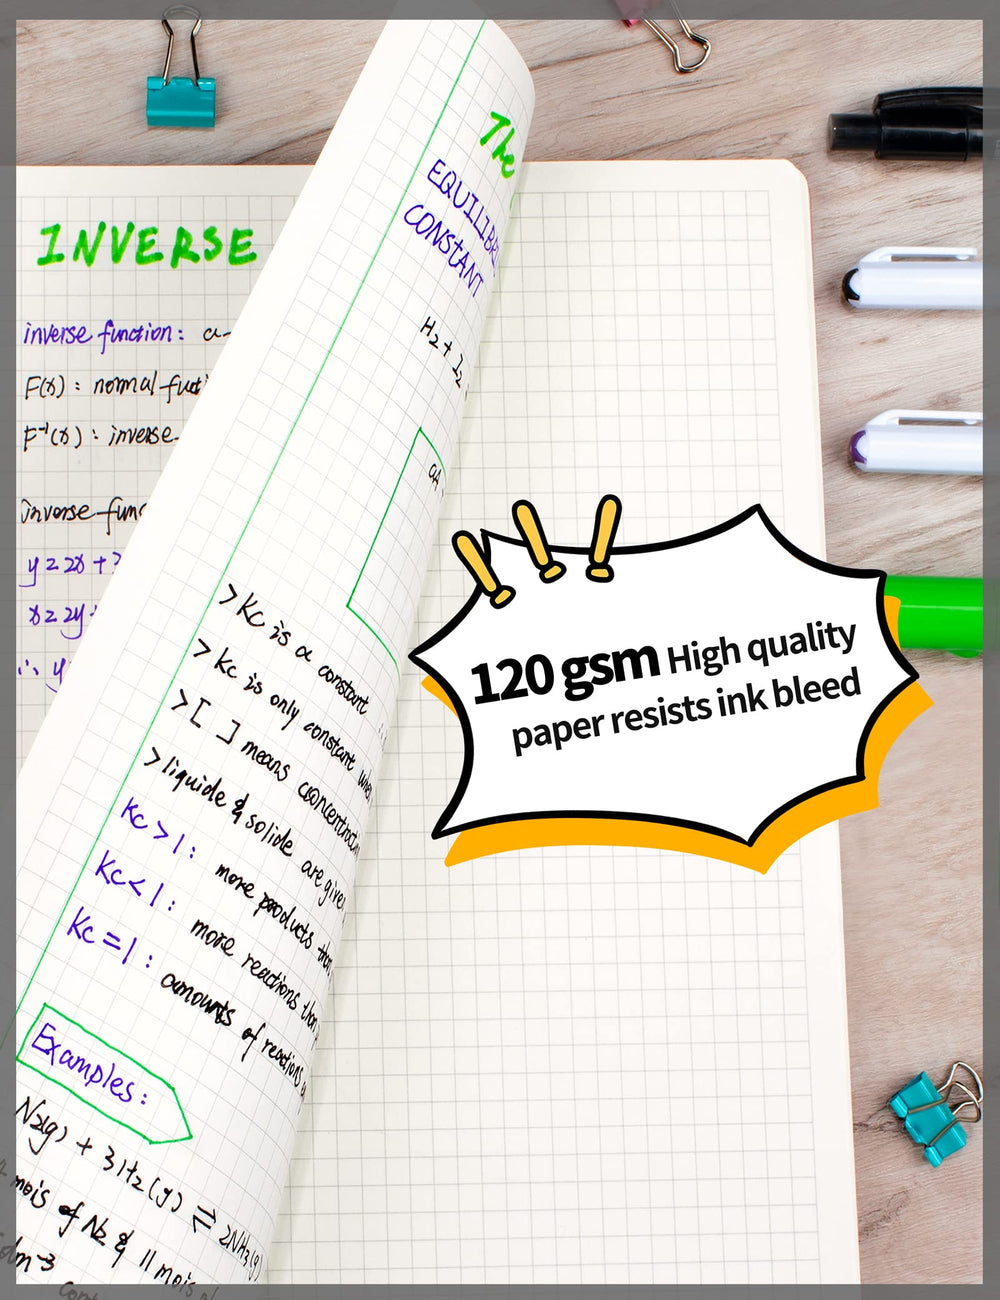 INVERSE
inverse function: a
F(x) : normal functi
F⁻¹(x) : inverse
inverse func
y = 2x +
x = 2y
∴ y
The
EQUILIBRI
CONSTANT
H₂ + I₂
aA
> Kc is a constant
> Kc is only constant when
> [ ] means concentration
> liquide & solide are given
Kc > 1 : more products than
Kc < 1 : more reactions than
Kc = 1 : amounts of reactions
Examples:
N₂(g) + 3H₂(g) ⇌ 2NH₃(g)
mois of N₂ & 11 mois of
dm⁻³
120 gsm High quality
paper resists ink bleed